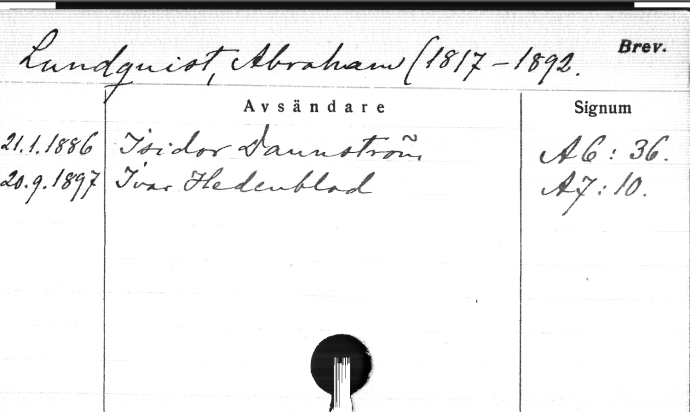 Lundquist, Abraham (1817-1892. Brev.
Avsändare Signum
21.1.1886 Isidor Dannström A6: 36.
20.9.1897 Ivar Hedenblad A7: 10.